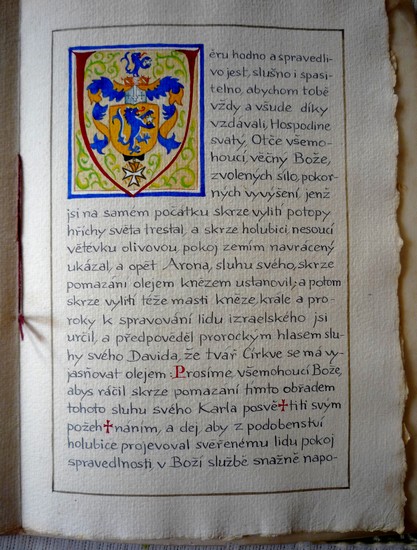 ěru hodno a spravedli-
vo jest, slušno i spasi-
telno, abychom tobě
vždy a všude díky
vzdávali, Hospodine
svatý, Otče všemo-
houcí, věčný Bože,
zvolených sílo, pokor-
ných vyvýšení, jenž
jsi na samém počátku skrze vylití potopy
hříchy světa trestal, a skrze holubici, nesoucí
větévku olivovou, pokoj zemím navrácený
ukázal, a opět Arona, sluhu svého, skrze
pomazání olejem knězem ustanovil; a potom
skrze vylití téže masti kněze, krále a pro-
roky k spravování lidu izraelského jsi
určil, a předpověděl prorockým hlasem slu-
hy svého Davida, že tvář Církve se má vy-
jasňovat olejem: Prosíme všemohoucí Bože,
abys ráčil skrze pomazání tímto obřadem
tohoto sluhu svého Karla posvě✝titi svým
požeh✝náním, a dej, aby z podobenství
holubice projevoval svěřenému lidu pokoj
spravedlnosti v Boží službě snažně napo-